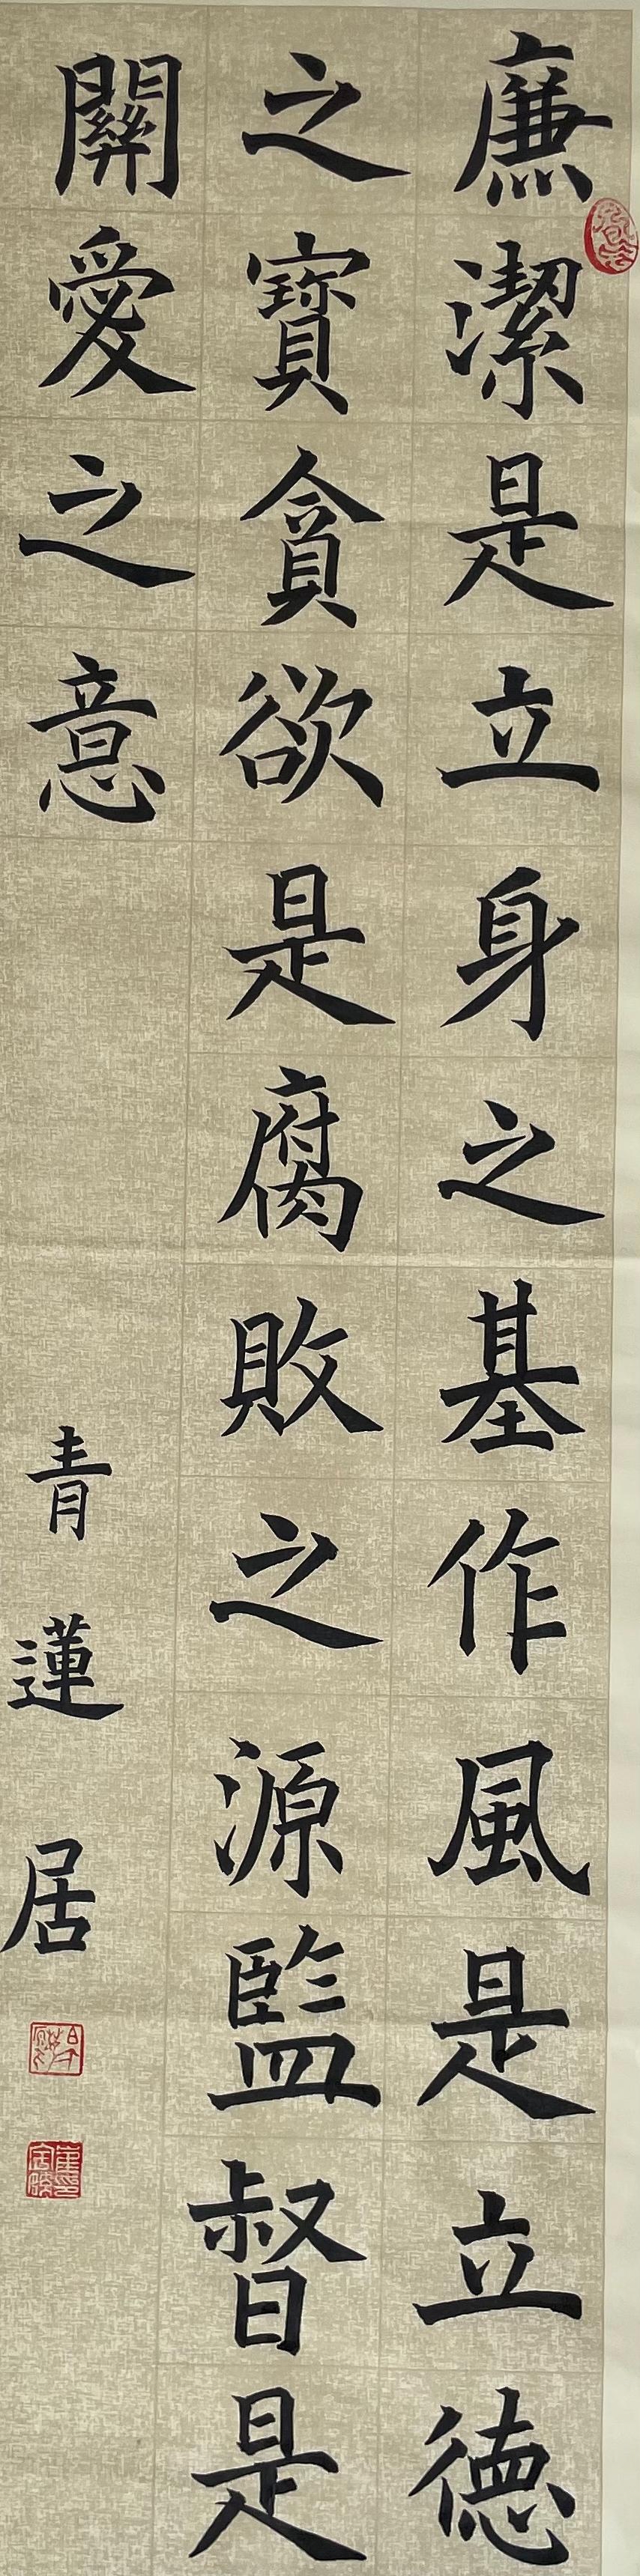 廉潔是立身之基作風是立德
之寶貪欲是腐敗之源監督是
關愛之意
青蓮居